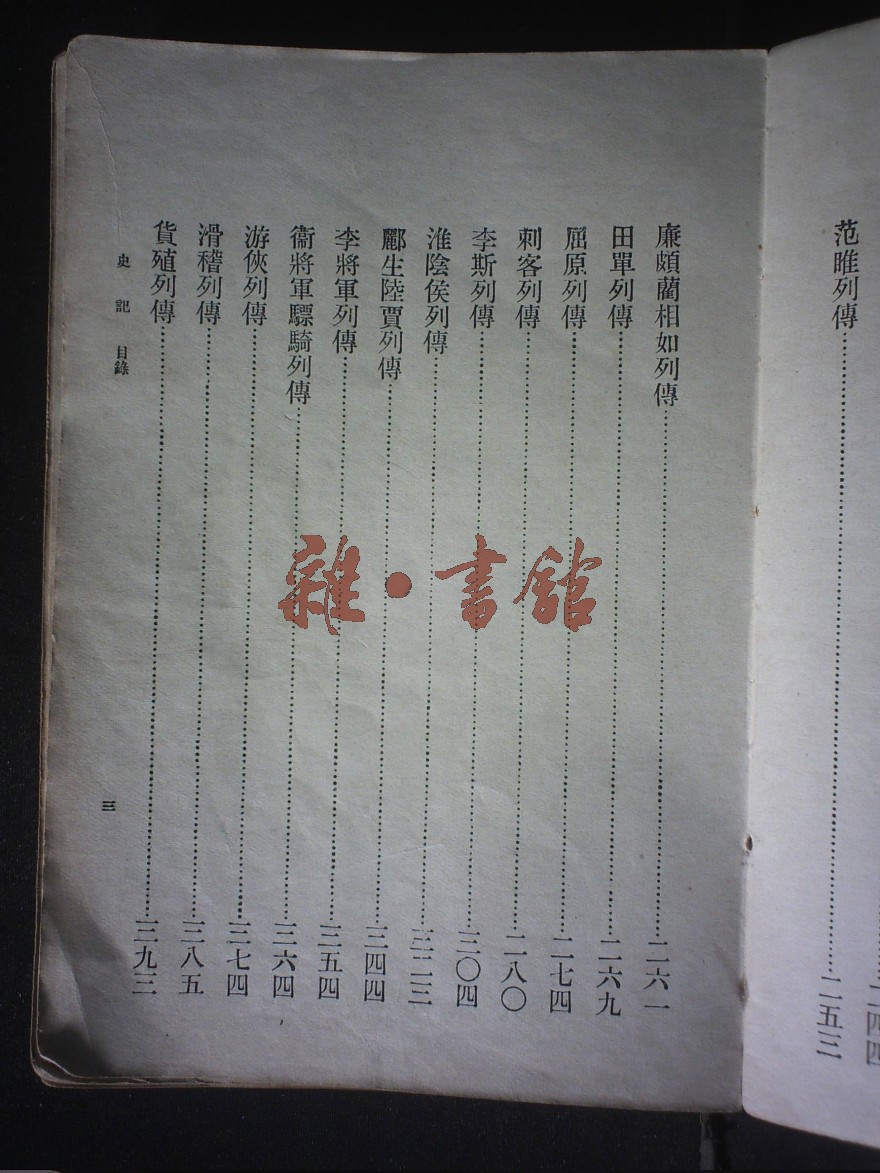 范睢列傳……二五三
廉頗藺相如列傳……二六一
田單列傳……二六九
屈原列傳……二七四
刺客列傳……二八〇
李斯列傳……三〇四
淮陰侯列傳……三二三
酈生陸賈列傳……三四四
李將軍列傳……三五四
衞將軍驃騎列傳……三六四
游俠列傳……三七四
滑稽列傳……三八五
貨殖列傳……三九三
史記 目錄
三
雜·書館